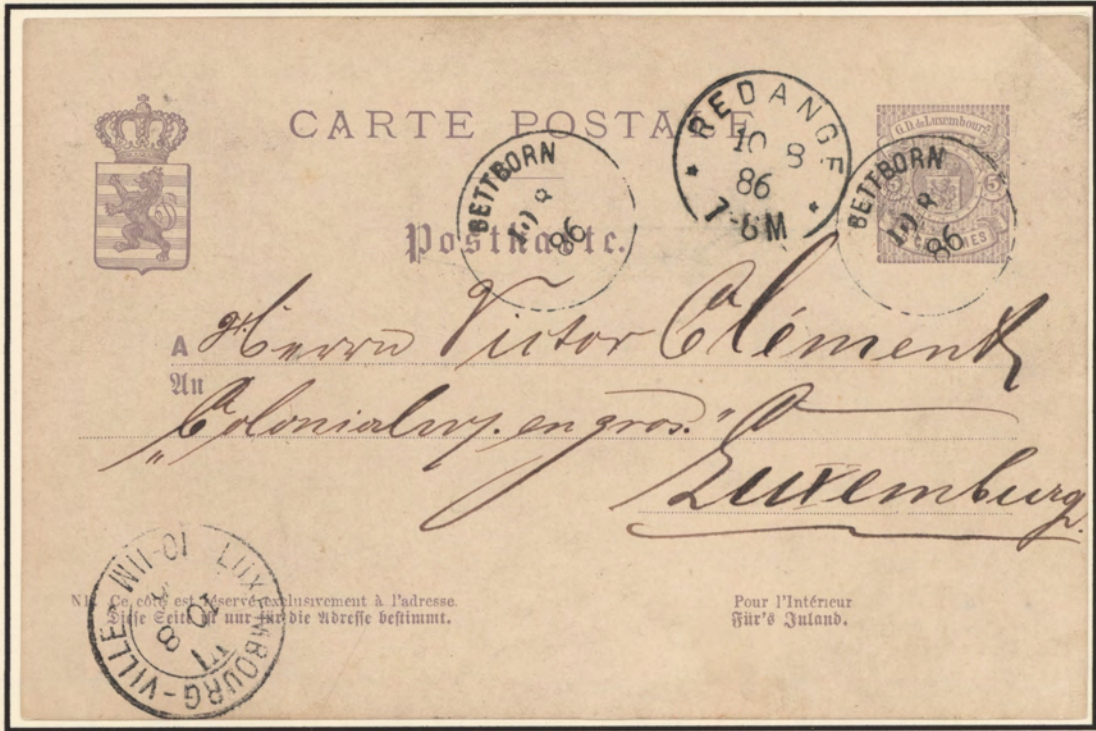 CARTE POSTALE
Postkarte.
G.D. de Luxembourg
5 5
CENTIMES
BETTBORN
10 8
86
REDANGE
10 8
86
7-8M
BETTBORN
10 8
86
A Herrn Victor Clément
An
"Colonialw. en gros."
Luxemburg.
LUXEMBOURG-VILLE
10-11M
10
8
NB. Ce côté est réservé exclusivement à l'adresse.
Diese Seite ist nur für die Adresse bestimmt.
Pour l'Intérieur
Für's Inland.